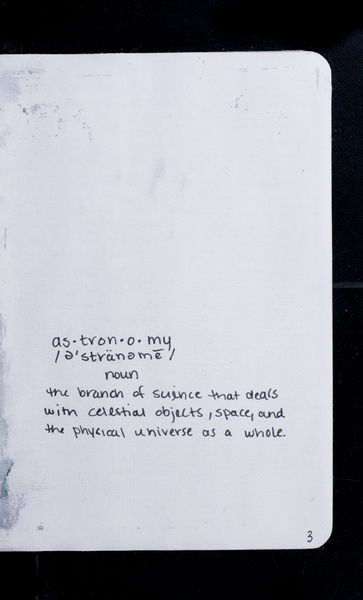 as·tron·o·my
/ə'stränəmē/
noun
the branch of science that deals
with celestial objects, space, and
the physical universe as a whole.
3